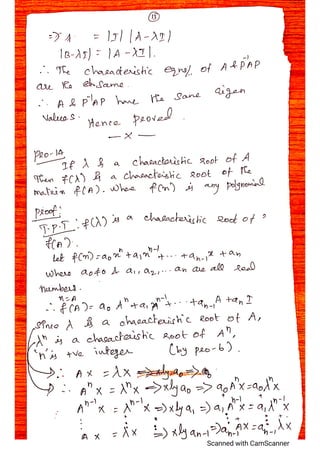 (13)
=> A = |I| |A-λI|
|B-λI| = |A-λI|.
∴ The characteristic eqns/. of A & P⁻¹AP
are the same.
∴ A & P⁻¹AP have the same eigen
values. Hence proved.
—x—
Pro-14
If λ is a characteristic root of A
Then f(λ) is a characteristic root of the
matrix f(A). where f(x) is any polynomial
Proof:
T.P.T : f(λ) is a characteristic root of
f(A).
let f(x)=a₀xⁿ+a₁xⁿ⁻¹+...+aₙ₋₁x+aₙ
where a₀≠0 & a₁, a₂,... aₙ are all real
numbers.
x=A
∴ f(A)= a₀Aⁿ+a₁Aⁿ⁻¹+...+aₙ₋₁A+aₙI
Since λ is a characteristic root of A,
λⁿ is a characteristic root of Aⁿ,
'n' is +ve integer (by pro-6).
∴ AX = λX
∴ AⁿX = λⁿX => xly a₀ => a₀AⁿX=a₀λⁿX
Aⁿ⁻¹X = λⁿ⁻¹X => xly a₁ => a₁Aⁿ⁻¹X = a₁λⁿ⁻¹X
AX = λX => xly aₙ₋₁ => aₙ₋₁AX=aₙ₋₁λX
Scanned with CamScanner